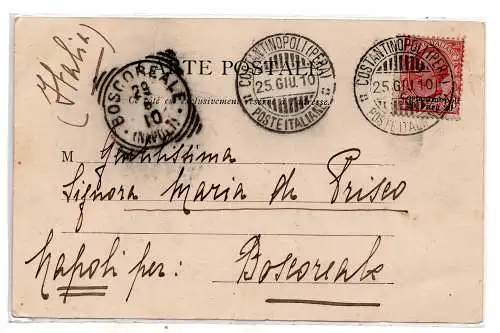 (Italia)
CARTE POSTALE
Ce côté est exclusivement réservé à l'adresse.
COSTANTINOPOLI (PERA)
25. GIU. 10
POSTE ITALIANE
COSTANTINOPOLI (PERA)
25. GIU. 10
POSTE ITALIANE
BOSCOREALE
29
10
(NAPOLI)
M Gentilissima
Signora Maria di Prisco
Napoli per: Boscoreale